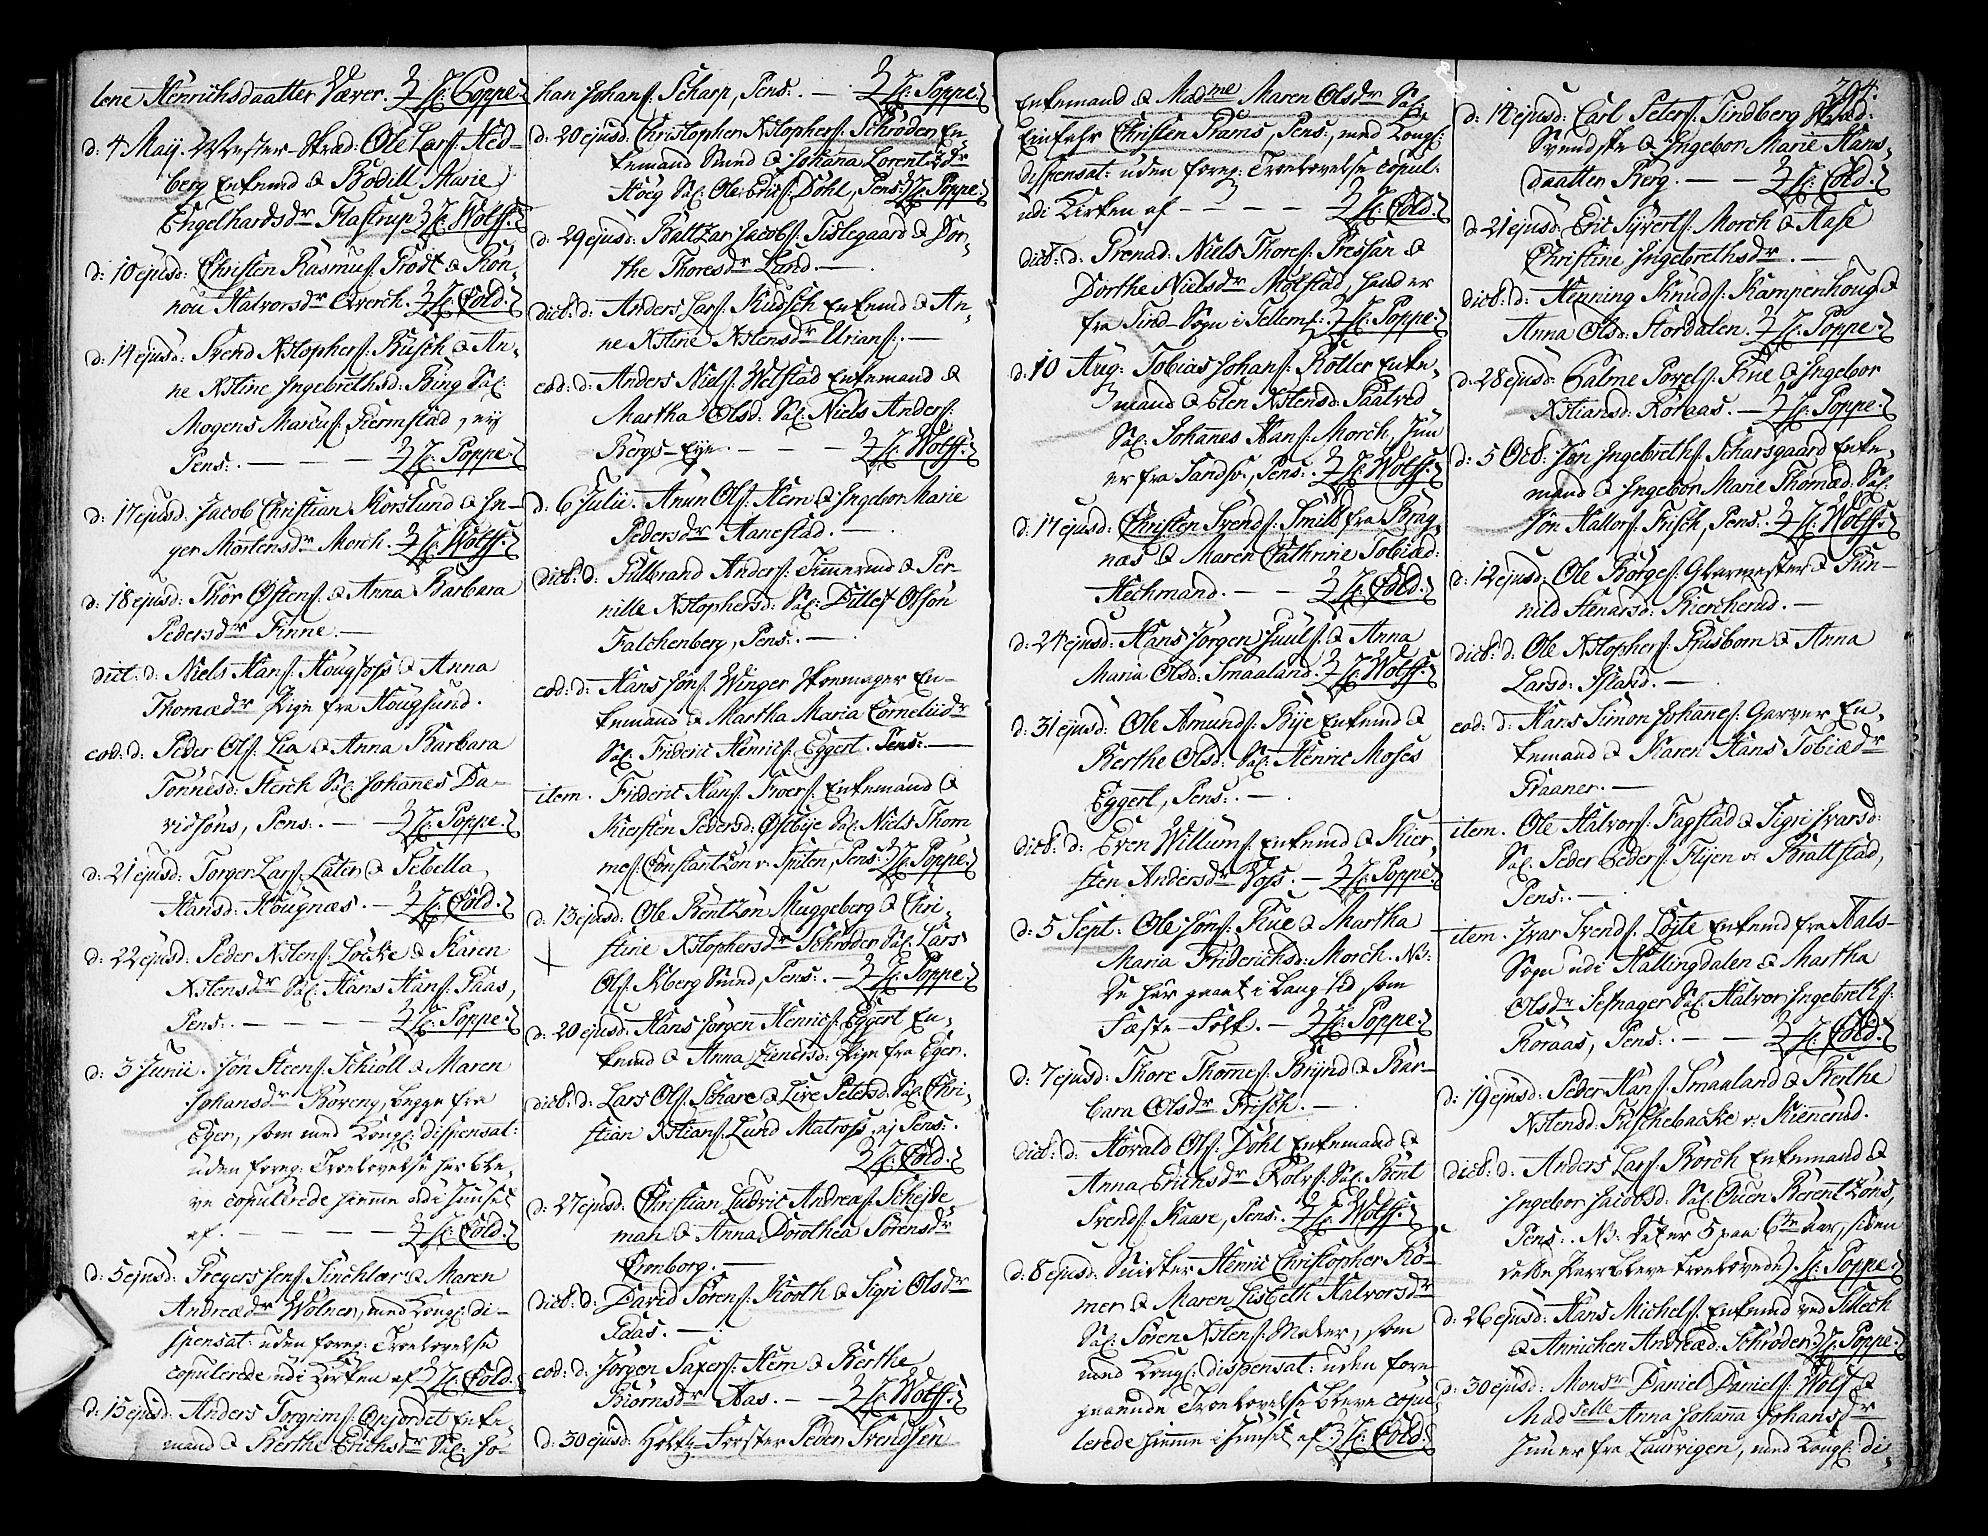 lene Henrichsdaatter Væver. H: Poppe.
d: 4 Maij. Wester-Strad: Ole Lars: Hed-
berg Enkemd & Bodill Marie
Engelhardsdr Flastrup H: Wolff.
d: 10 ejusd: Christen Rasmus: Brodt & Rön-
nou Halvorsdr Qverch. H: Cold.
d: 14 ejusd: Svend Xstophers: Busch & An-
ne Xstine Ingebrethsd: Bing Sal:
Mogens Marcus: Fiermstad, ej
Pens: — — — H: Poppe.
d: 17 ejusd. Jacob Christian Korslund & In-
ger Mortensdr Morch. H: Wolff.
d: 18 ejusd: Thör Östens: & Anna Barbara
Pedersdr Finne. —
dict: d: Niels Hans: Hougfoss & Anna
Thomædr Pige fra Hougsund.
eod: d: Peder Ols: Lia & Anna Barbara
Tönnesd: Sterch Sal: Johannes Da-
vidsöns, Pens: — H: Poppe.
d: 21 ejusd: Torger Lars: Laten & Sebella
Hansd: Hougnæs. — H: Cold.
d: 22 ejusd: Peder Xstens: Löcke & Karen
Xstensdr Sal: Hans Hans: Paas,
Pens: — — — — H: Poppe.
d: 3 Junii. Jön Steens: Schiöll & Maren
Johansdr Böreng, begge fra
Eger, som med Kongl: dispensat:
uden foreg: Troelovelse her ble-
ve copulerede hiemme udi Huuset
af. — — — — H: Cold.
d: 5 ejusd: Pregers Jens: Sinchlar & Maren
Andreædr Wölner, med Kongl: di-
spensat: uden foreg: Troelovelse
copulerede udi Kirken af H: Cold.
d: 15 ejusd: Anders Torgrims: Opsordet Enke-
mand & Berthe Erichsdr Sal: Jo-
han Johans: Scharp, Pens: — H: Poppe.
d: 20 ejusd: Christopher Xstophers: Schröder En-
kemand Smed & Johana Lorentzdr
Höeg Sal: Ole Erics: Döhl, Pens: H: Poppe.
d: 29 ejusd: Baltzar Jacobs: Tislegaard & Dor-
the Thoresdr Lund. —
dict: d: Anders Lars: Kudsch Enkemd & An-
ne Xstine Xstensdr Urians: —
eod: d: Anders Niels: Welstad Enkemand &
Martha Olsd: Sal: Niels Anders:
Bergs-Eje. — — — H: Wolff.
d: 6 Julii. Anun Ols: Hem & Ingebor Marie
Pedersdr Hanestad. —
dict: d: Gulbrand Anders: Timerud & Per-
nille Xstophersd: Sal: Dillef Olsön
Falchenberg, Pens: —
eod: d: Hans Jöns: Winger Skomager En-
kemand & Martha Maria Corneliidr
Sal: Frideric Henrics: Eggert. Pens: —
item. Frideric Hans: Froers: Enkemand &
Kiersten Pedersd: Østebije Sal: Niels Thom
mes: Constantzön v: Spiten, Pens: H: Poppe.
d: 13 ejusd: Ole Bentzön Muggeberg & Chri-
stine Xstophersdr Schröder Sal: Lars
Ols: Kberg Smed, Pens: — H: Poppe.
d: 20 ejusd: Hans Jörgen Henrics: Eggert En-
kemd & Anna Eienersd: Pige fra Eger.
dict: d: Lars Ols: Schare & Live Petersd: Sal: Chri-
stian Xstians: Lund Matross, ej Pens:
H: Cold.
d: 27 ejusd: Christian Ludvic Andreas: Schejde-
man & Anna Dorothea Sörensdr
Cronborg. —
dict: d: David Sörens: Korth & Sigri Olsdr
Paas. —
eod: d: Jörgen Saxers: Hem & Berthe
Biörnsdr Aas. — H: Wolff.
d: 30 ejusd: Holtz-Forster Peder Svendsen
Enkemand & Madme Maren Olsdr Sal:
Einfehr Christen Prams, Pens:, med Kongl:
dispensat: uden foreg: Troelovelse copul:
udi Kirken af — — — H: Cold.
dict: d. Grenad: Niels Thores: Fressen &
Dorthe Nielsdr Molstad, hand er
fra Tind-Sogn i Tellem: H: Poppe.
d: 10 Aug: Tobias Johans: Kotler Enke-
mand & Elen Xstensd: Saatved
Sal: Johannes Hans: Morch, Hun
er fra Sandsv., Pens: H: Wolff.
d: 17 ejusd: Christen Svends: Smith fra Brag-
næs & Maren Cathrine Tobiæd:
Hechmand. — — H: Cold.
d: 24 ejusd: Hans Jörgen Juuls: & Anna
Maria Olsd: Smaaland. H: Wolff.
d: 31 ejusd: Ole Amunds: Bije Enkemd &
Berthe Olsd: Sal: Henric Moses
Eggert, Pens: —
dict: d: Even Willums: Enkemd & Kier-
sten Andersdr Foss. — H: Poppe.
d: 5 Sept. Ole Jöns: Kue & Martha
Maria Friderichsd: Morch. NB:
De har gaaet i Lang tid som
Fæste-Folk. — H: Poppe.
d: 7 ejusd: Thore Thomes: Brijnd & Bar-
bara Olsdr Frisch. —
dict: d. Harald Ols: Döhl Enkemand &
Anna Erichsdr Rolvs: Sal: Bent
Svends: Kaare, Pens: H: Wolff.
d: 8 ejusd: Snicker Henric Christopher Rö-
mer & Maren Lisbeth Halvorsdr
Sal: Sören Xstens: Maler, som
med Kongl: dispensat: uden fore-
gaaende Troelovelse bleve copu-
lerede hiemme i Huuset af H: Cold.
204.
d: 14 ejusd: Carl Peters: Lindberg
Svendske & Ingebor Marie Hans-
daatter Berg. — — H: Cold.
d: 21 ejusd: Eric Syverts: Morch & Aase
Christine Ingebrethsdr. —
dict: d: Henning Knuds: Kampenhoug &
Anna Olsd: Stordalen. H: Poppe.
d: 28 ejusd: Palme Povels: Fine & Ingebor
Xstiansd: Koraas. — H: Poppe.
d: 5 Oct: Jön Ingebreths: Scharsgaard Enke-
mand & Ingebor Marie Thomæd: Sal:
Jön Hallors: Frisch, Pens: H: Wolff.
d: 12 ejusd: Ole Börges: Glarmester & Gun-
nild Stenarsd: Kiercherud. —
dict: d: Ole Xstophers: Husborn & Anna
Larsd: Island. —
eod: d: Hans Simon Johannes: Garver En-
kemand & Karen Hans Tobiædr
Praaner. —
item. Ole Halvors: Fagstad & Sigri Ivarsd:
Sal: Peder Peders: Flijen v: Brattstad,
Pens: —
item. Ivar Svends: Löjte Enkemd fra Aals-
Sogn udi Hallingdalen & Martha
Olsdr Sefnager Sal: Halvor Ingebreths:
Koraas, Pens: — — H: Cold.
d: 19 ejusd: Peder Hans: Smaaland & Berthe
Xstensd: Fuschebacke v: Kienerud.
dict: d: Anders Lars: Borch Enkemand &
Ingebor Jacobsd: Sal: Ouen Berentzöns,
Pens: NB: Det er 5 paa 6te aar, siden
dette Par bleve troelovede. H: Poppe.
d: 26 ejusd: Hans Michels: Enkemd ved
& Annichen Andreæd: Schröder. H: Poppe.
d: 30 ejusd: Monsr Daniel Daniels: Wolf &
Madselle Anna Johanna Johansdr
Hun er fra Laurvigen, med Kongl: di-